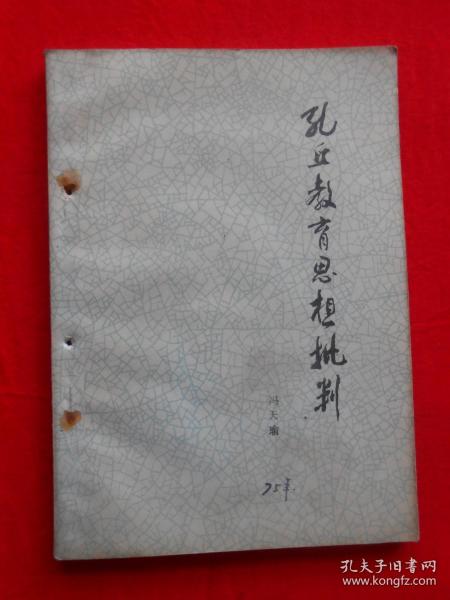 孔丘教育思想批判
冯天瑜
75年
孔夫子旧书网
www.kongfz.com